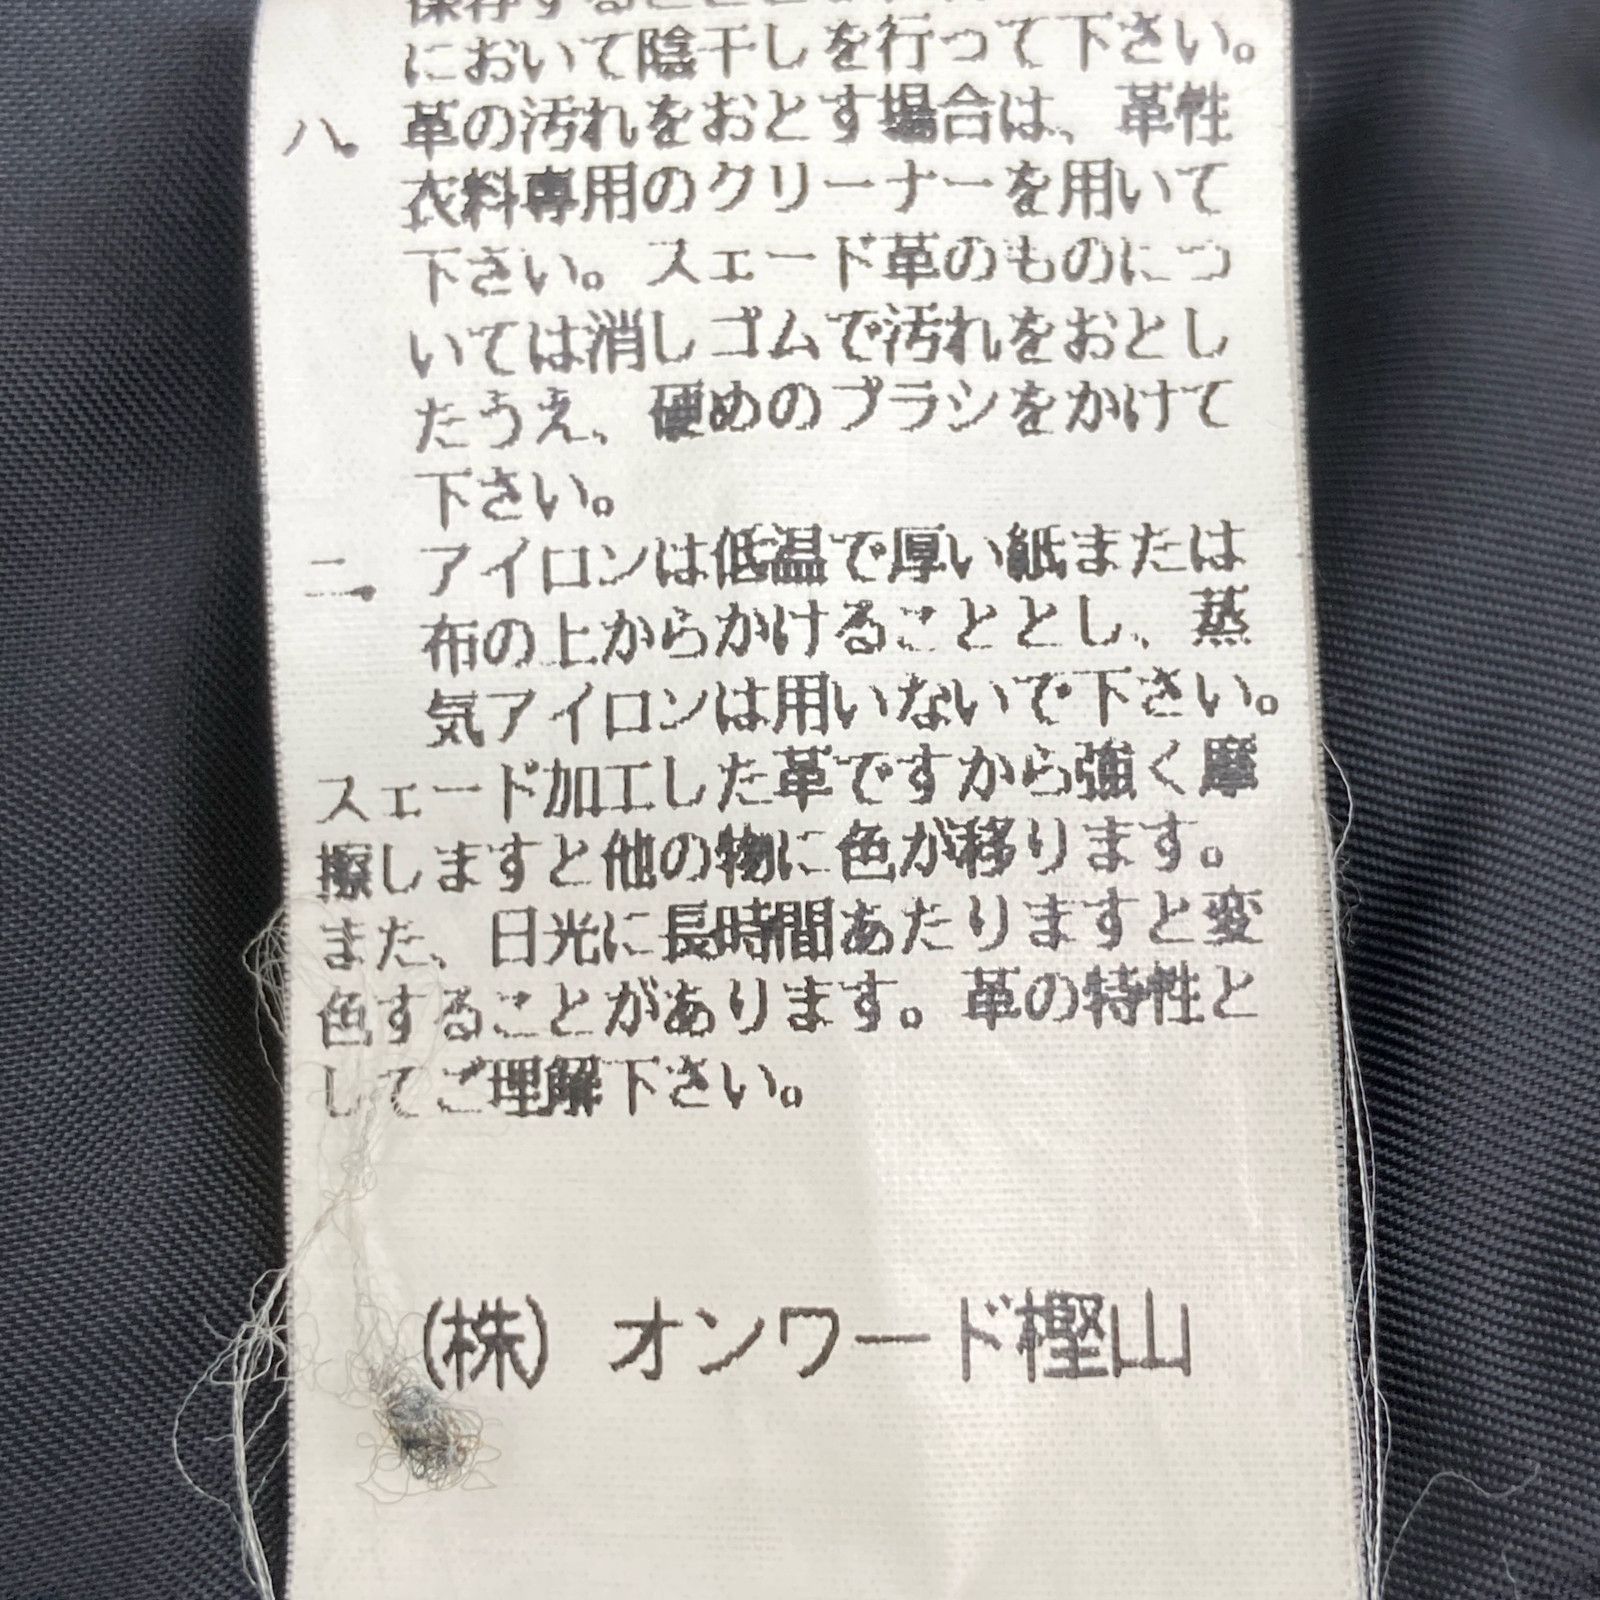 において陰干しを行って下さい。
ハ. 革の汚れをおとす場合は、革性
衣料専用のクリーナーを用いて
下さい。スェード革のものにつ
いては消しゴムで汚れをおとし
たうえ、硬めのブラシをかけて
下さい。
ニ. アイロンは低温で厚い紙または
布の上からかけることとし、蒸
気アイロンは用いないで下さい。
スェード加工した革ですから強く摩
擦しますと他の物に色が移ります。
また、日光に長時間あたりますと変
色することがあります。革の特性と
してご理解下さい。
(株) オンワード樫山